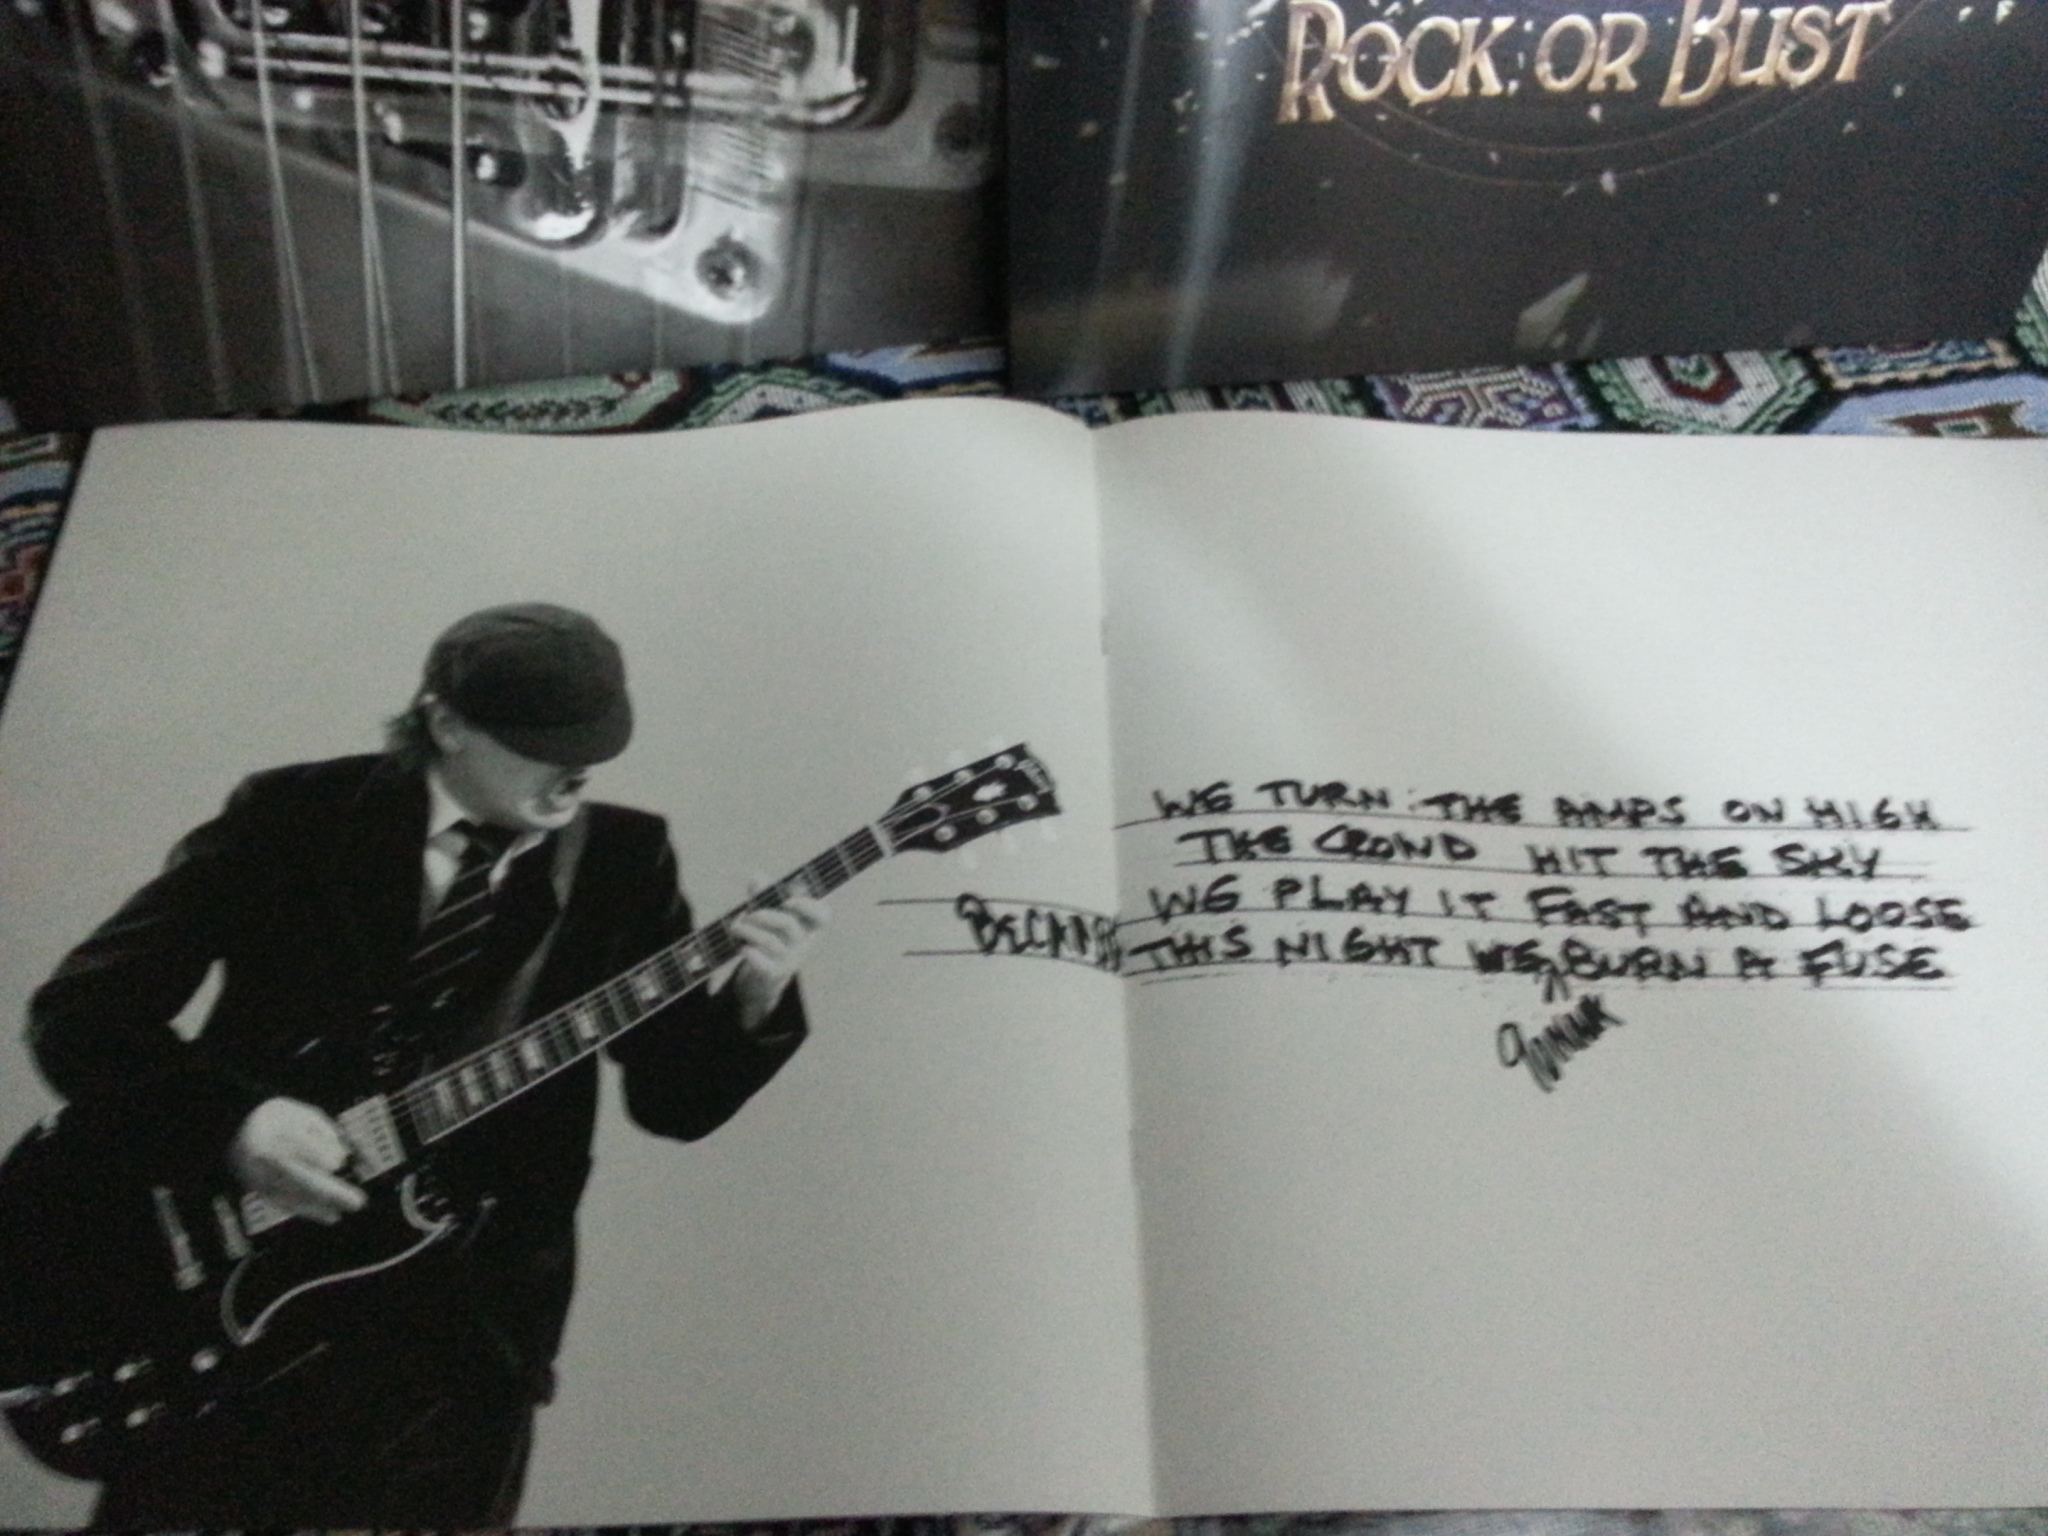 ROCK OR BUST
WE TURN THE AMPS ON HIGH
THE CROWD HIT THE SKY
WE PLAY IT FAST AND LOOSE
BECAUSE THIS NIGHT WE BURN A FUSE